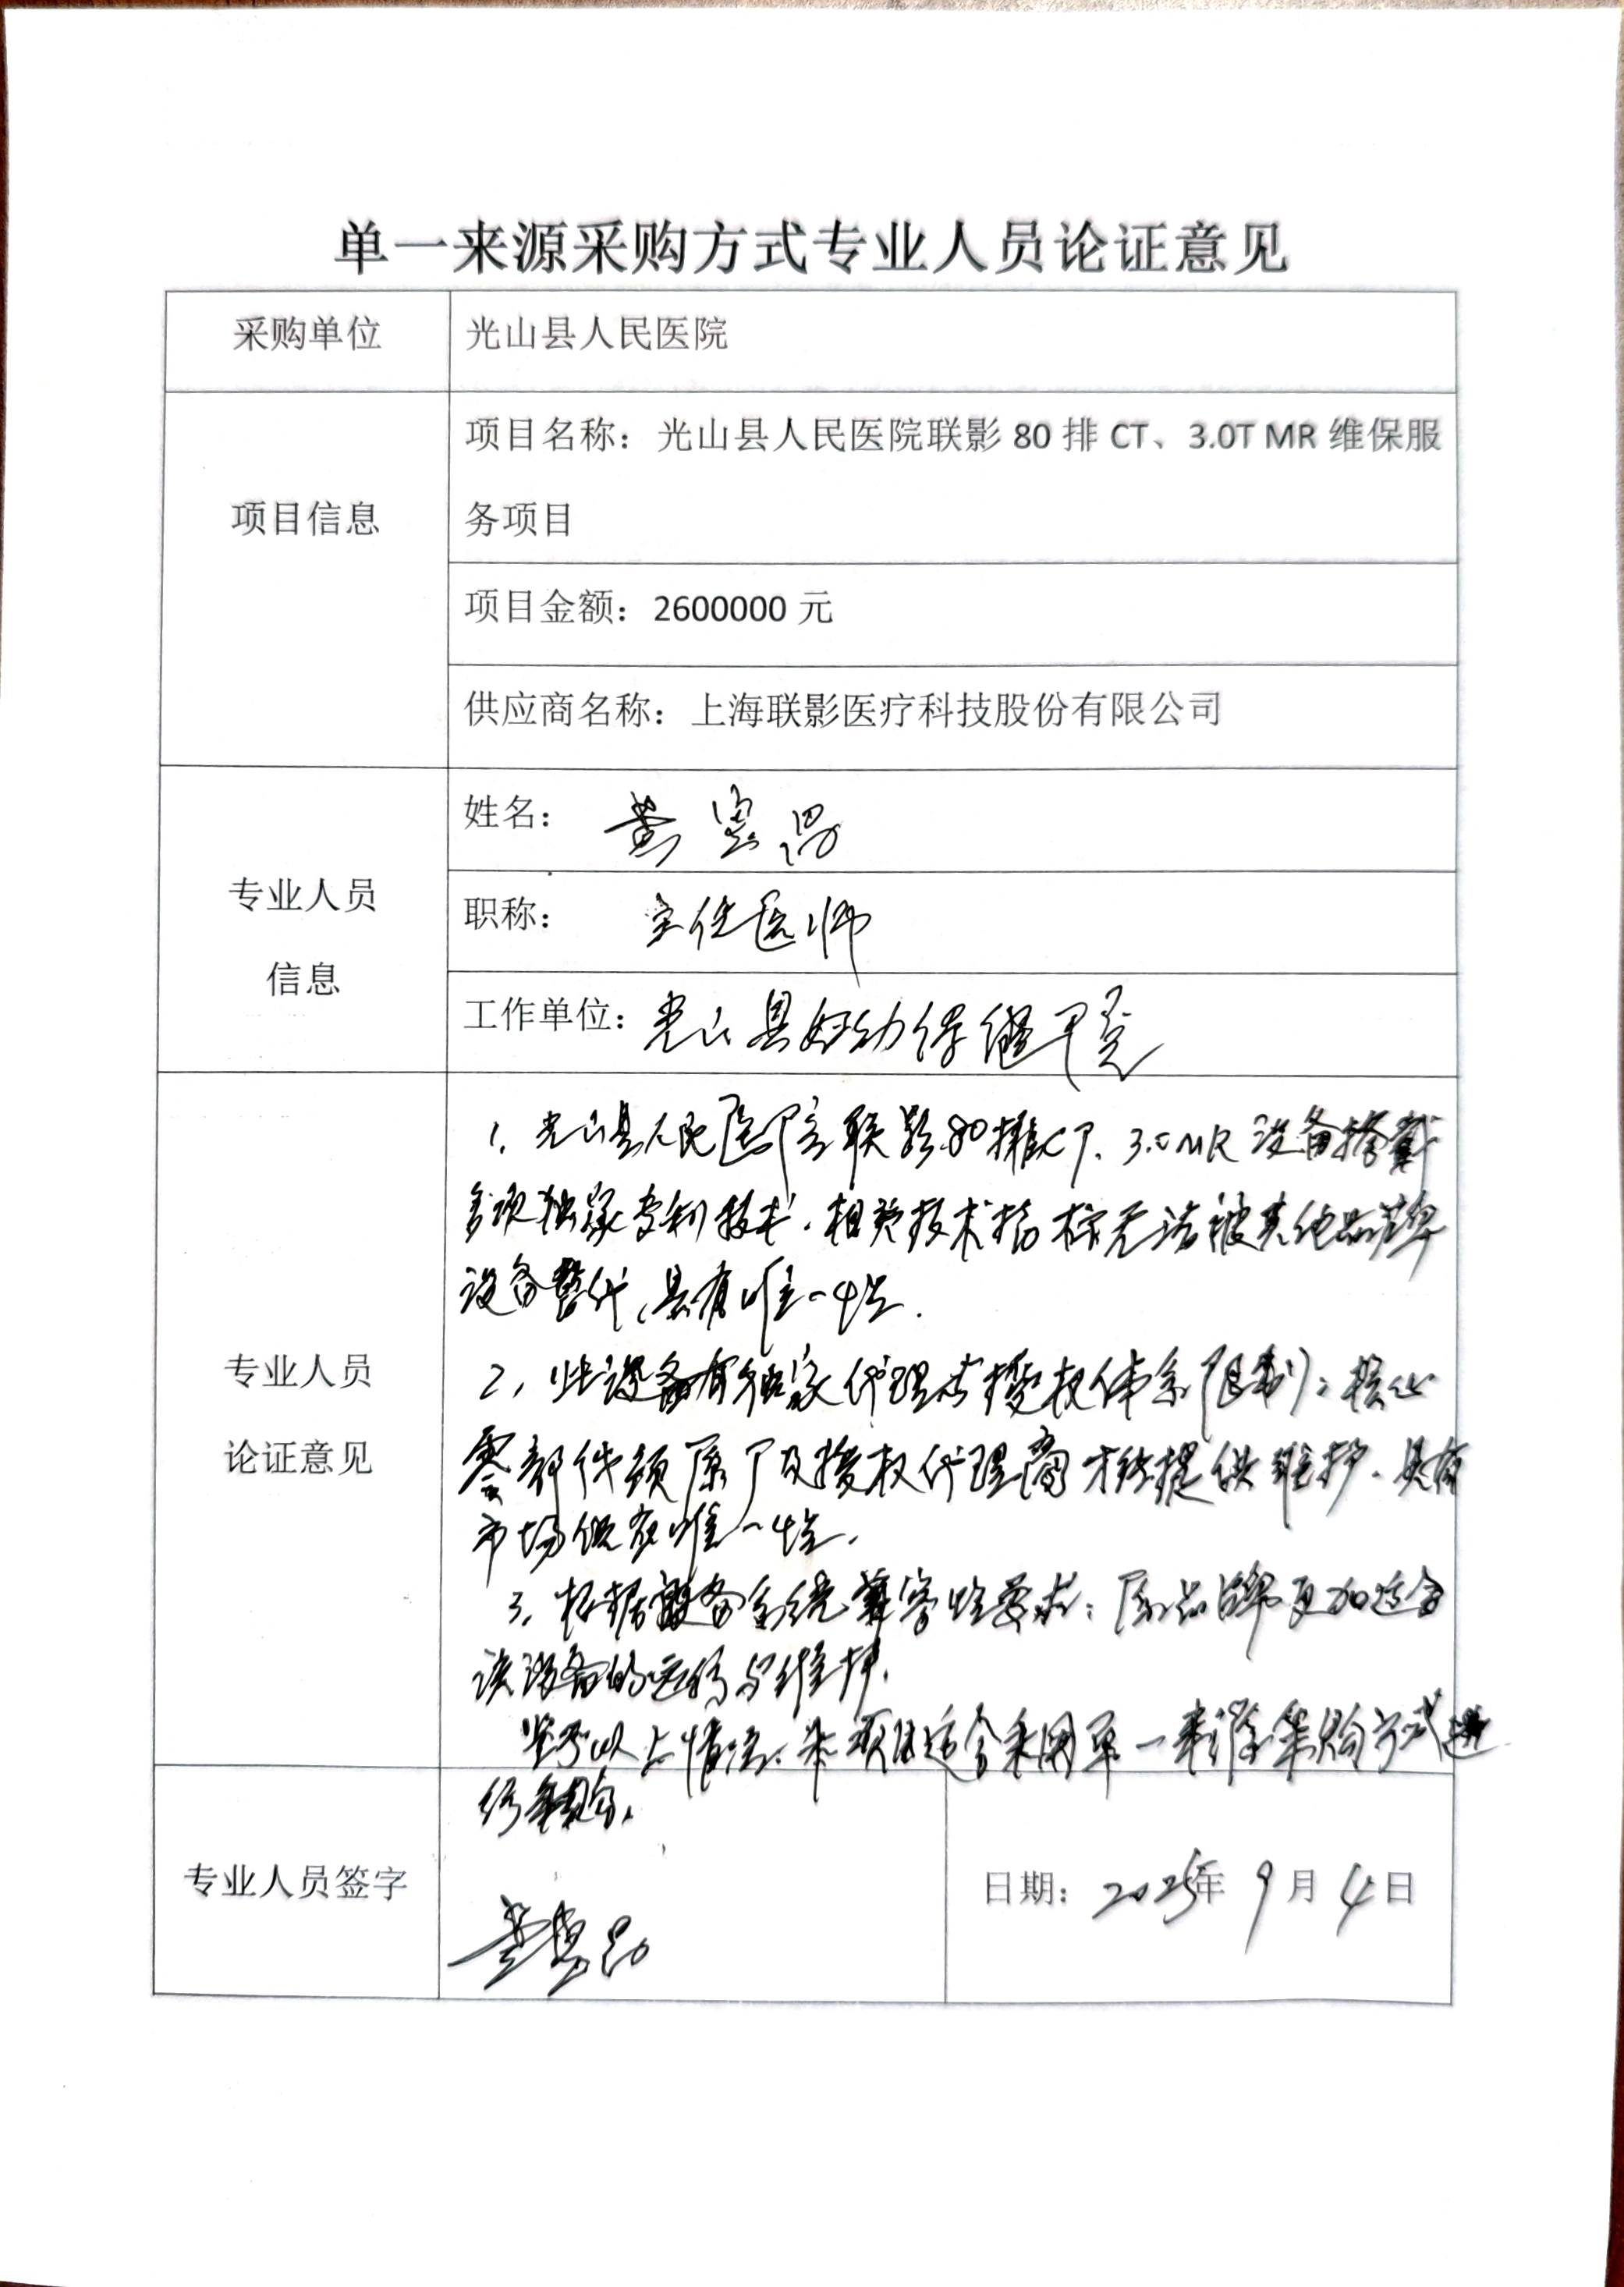 单一来源采购方式专业人员论证意见
采购单位
光山县人民医院
项目信息
项目名称：光山县人民医院联影 80 排 CT、3.0T MR 维保服
务项目
项目金额：2600000 元
供应商名称：上海联影医疗科技股份有限公司
专业人员
信息
姓名：黄
职称：主任医师
工作单位：光山县妇幼保健院
专业人员
论证意见
1、光山县人民医院联影80排CT、3.0MR设备搭载
多项独家专利技术，相关技术指标无法被其他品牌
设备替代，具有唯一性.
2、此设备有独家代理或授权体系限制，核心
零部件须原厂及授权代理商才能提供维护，具有
市场供应唯一性.
3、根据设备系统兼容性要求，原品牌更加适合
该设备的运行与维护.
鉴于以上情况，本项目适合采用单一来源采购方式进
行采购.
专业人员签字
黄
日期：2025年 9月 4日